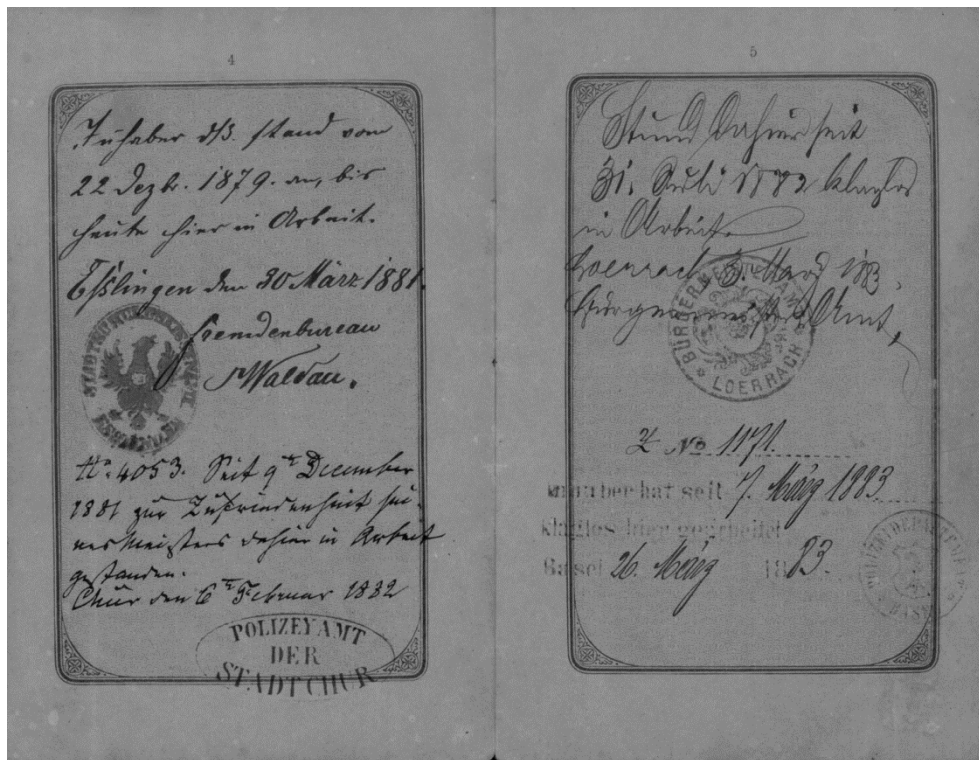 4
Inhaber dß. stand vom
22 Dezbr. 1879. an, bis
heute hier in Arbeit.
Eßlingen den 30 März 1881.
Fremdenbureau
Waldau.
No. 4053. Seit 9ten December
1881 zur Zufriedenheit sei-
nes Meisters dahier in Arbeit
gestanden.
Chur den 6ten Februar 1882
POLIZEYAMT
DER
STADT CHUR
5
Stund dahier seit
31. Juli 1882 klaglos
in Arbeit.
Loerrach 5. März 183.
Bürgermeister Amt,
BÜRGERMEISTERAMT
LOERRACH
No 1171.
Inhaber hat seit 7. März 1883
klaglos hier gearbeitet
Basel 26. März 1883.
POLIZEIDEPARTEMENT
BASEL